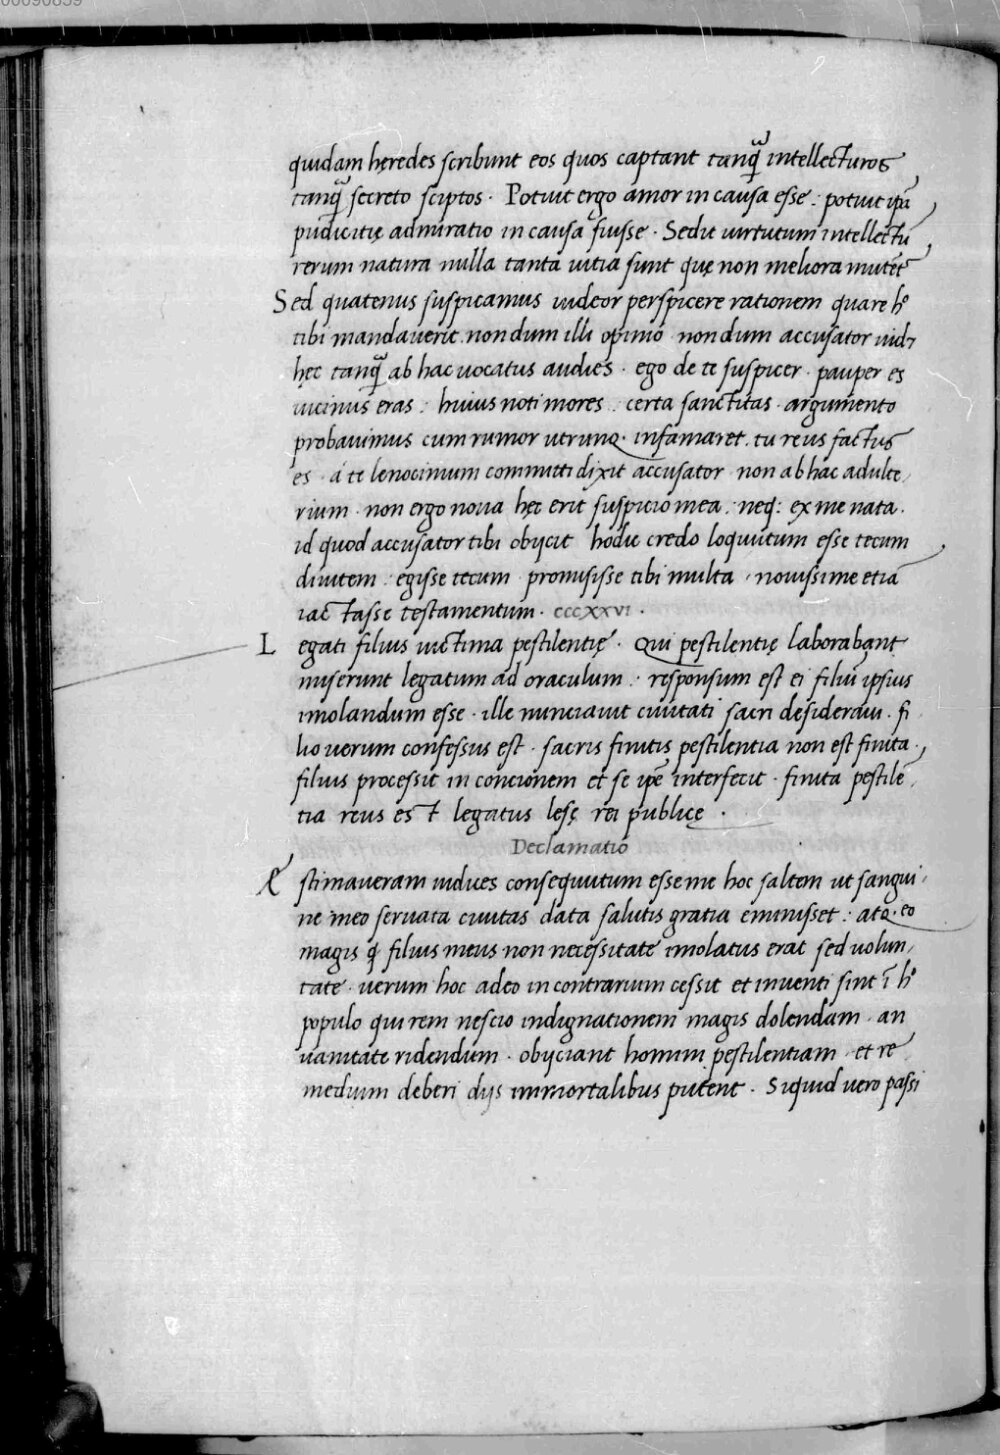 quidam hęredes scribunt eos quos captant tanq̃ intellecturos
tanq̃ secreto sciptos · Potuit ergo amor in causa esse : potuit ipā
pudicitię admiratio in causa fuisse · Sed ut uirtutum intellectū
rerum natura nulla tanta uitia sunt quę non meliora mutēt
Sed quatenus suspicamus uideor perspicere rationem quare hº
tibi mandauerit. nondum illi opinio · nondum accusator uid
hęc tanq̃ ab hac uocatus audies · ego de te suspicer · pauper es
uicinus eras : huius noti mores : certa sanctitas · argumento
probauimus cum rumor utrunq · infamaret. tu reus factus
es · a te lenocinium committi dixit accusator · non ab hac adulte
rium · non ergo noua hęc erit suspicio mea : neq: ex me nata ·
id quod accusator tibi obijcit hodie credo loquutum esse tecum
diuitem : egisse tecum · promisisse tibi multa · nouissime etiā
iactasse testamentum · CCCXXVI ·
Legati filius uictima pestilentię · Qui pestilentię laborabant
miserunt legatum ad oraculum : responsum est ei filiū ipsius
imolandum esse · ille nunciauit ciuitati sacri desideraui · fi
lio uerum confessus est · sacris finitis pestilentia non est finita ·
filius processit in concionem et se ipē interfecit · finita pestilē
tia reus est legatus lesę rei publicę ·
Declamatio
Æstimaueram iudices consequutum esse me hoc saltem ut sangui
ne meo seruata ciuitas data salutis gratia eminisset : atq · eo
magis q̃ filius meus non necessitate imolatus erat sed uolun
tate · uerum hoc adeo in contrarium cessit et inuenti sint ī hº
populo qui rem nescio indignationem magis dolendam · an
uanitate ridendum · obijciant homini pestilentiam · et re
medium deberi dijs immortalibus putent · Siquid uero passi